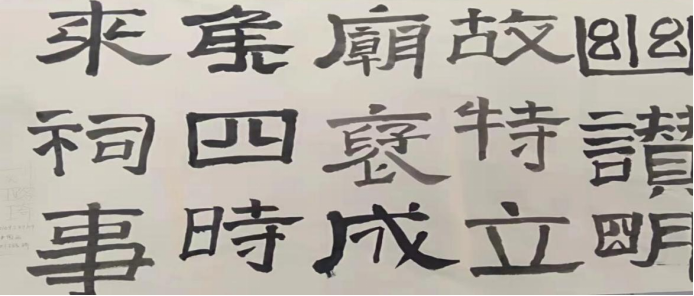 幽讚明
故特立
廟褒成
侯四時
來祠事